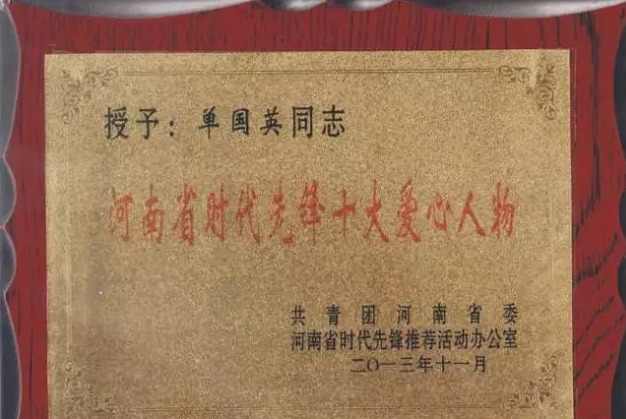 授予：单国英同志
河南省时代先锋十大爱心人物
共青团河南省委
河南省时代先锋推荐活动办公室
二〇一三年十一月